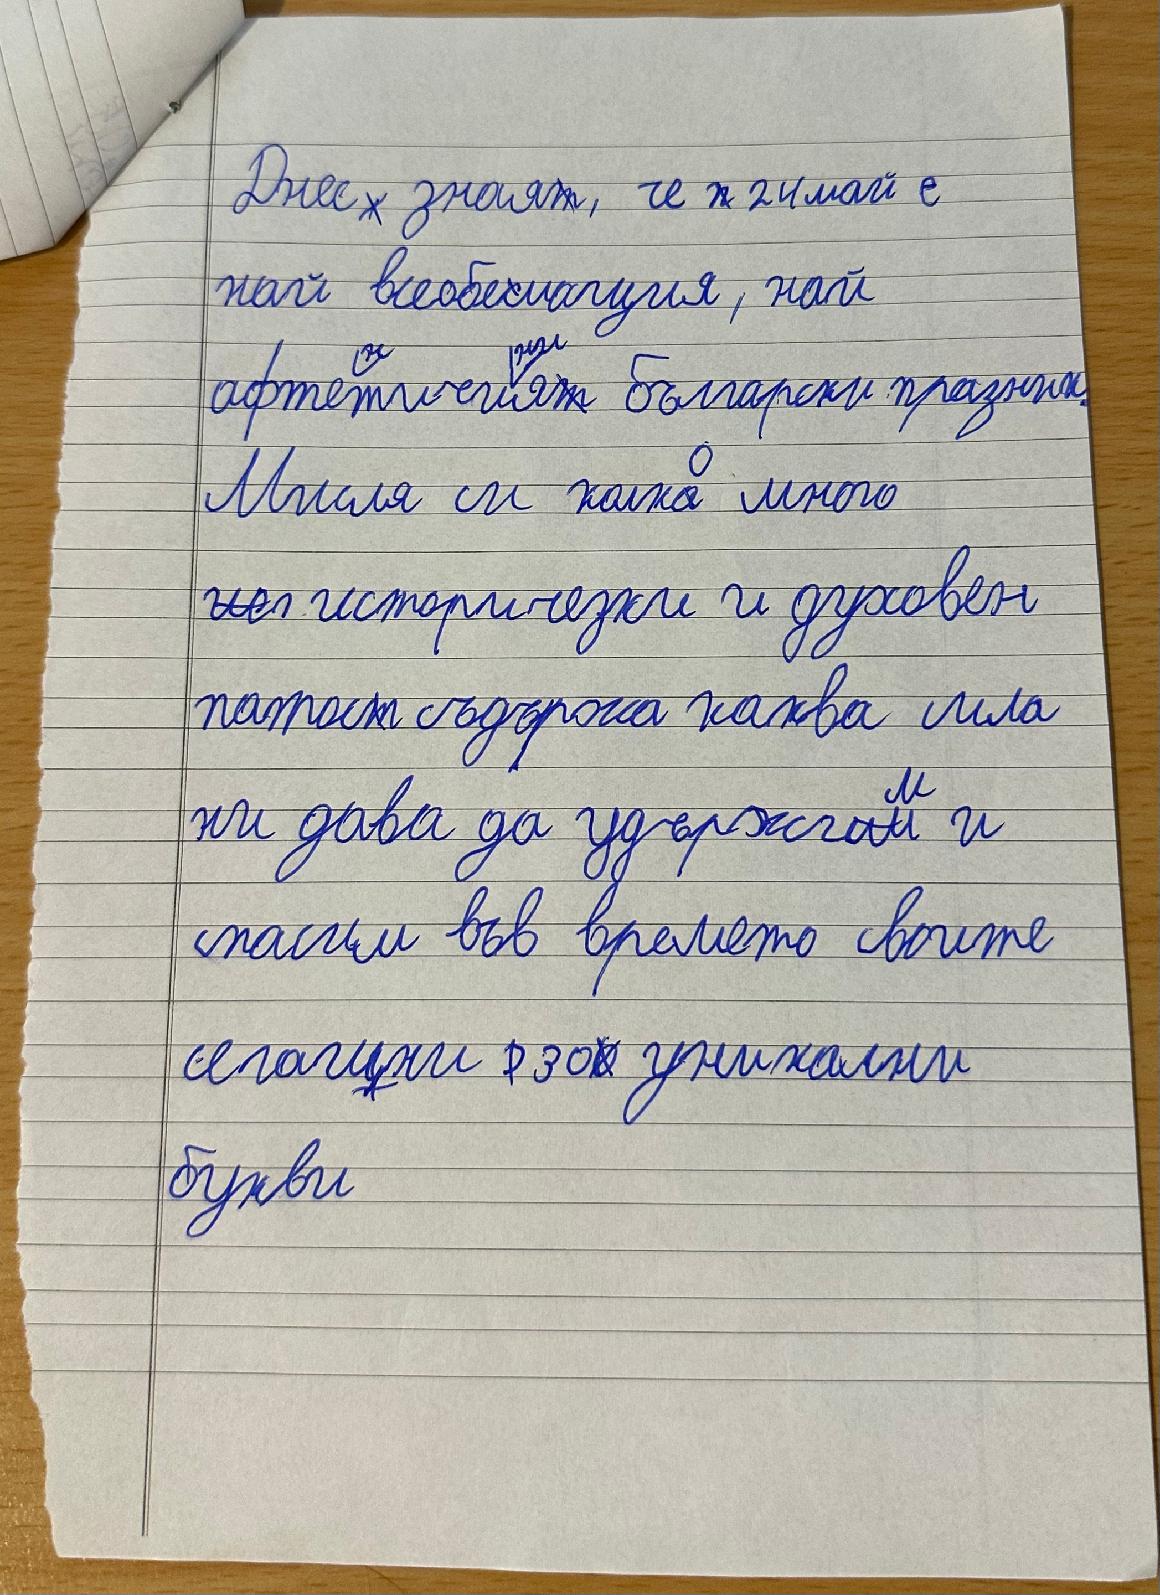 Днес знаят, че 24 май е
най всеобехнагция, най
афтетичният български празник.
Мисля си колко много
исторически и духовен
патост съдържа каква сила
ни дава да удържгам и
спасим във времето своите
сегагцни 30 уникални
букви